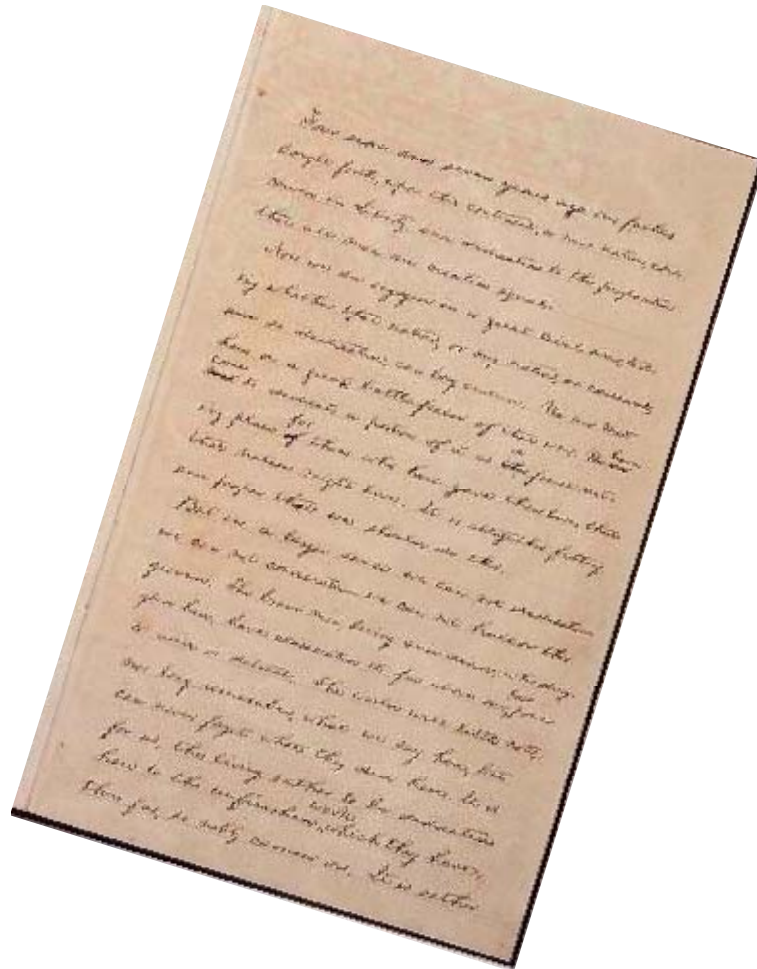 Four score and seven years ago our fathers
brought forth, upon this continent, a new nation, con-
ceived in Liberty, and dedicated to the proposition
that all men are created equal.
Now we are engaged in a great civil war, test-
ing whether that nation, or any nation, so conceived,
and so dedicated, can long endure. We are met
here on a great battle-field of that war. We have
come
to dedicate a portion of it as a final rest-
ing place for those who here gave their lives that
that nation might live. It is altogether fitting
and proper that we should do this.
But in a larger sense we can not dedicate
we can not consecrate we can not hallow this
ground. The brave men, living and dead, who strug-
gled here, have consecrated it far above our poor
to add or detract. The world will little note,
nor long remember, what we say here, but
can never forget what they did here. It is
for us, the living, rather to be dedicated
here to the unfinished work which they have,
thus far, so nobly carried on. It is rather